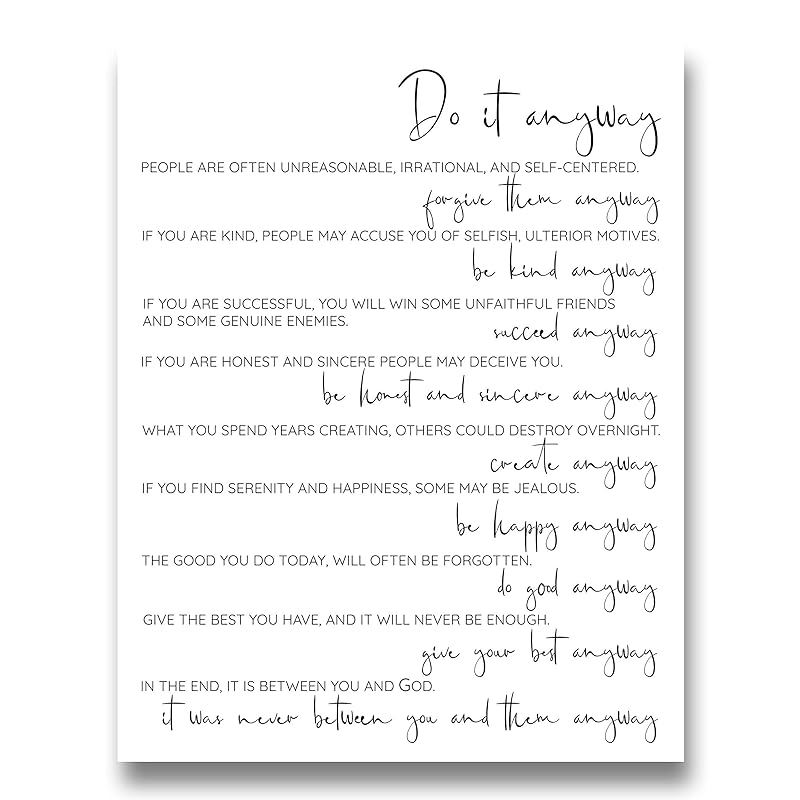 Do it anyway
PEOPLE ARE OFTEN UNREASONABLE, IRRATIONAL, AND SELF-CENTERED.
forgive them anyway
IF YOU ARE KIND, PEOPLE MAY ACCUSE YOU OF SELFISH, ULTERIOR MOTIVES.
be kind anyway
IF YOU ARE SUCCESSFUL, YOU WILL WIN SOME UNFAITHFUL FRIENDS
AND SOME GENUINE ENEMIES.
succeed anyway
IF YOU ARE HONEST AND SINCERE PEOPLE MAY DECEIVE YOU.
be honest and sincere anyway
WHAT YOU SPEND YEARS CREATING, OTHERS COULD DESTROY OVERNIGHT.
create anyway
IF YOU FIND SERENITY AND HAPPINESS, SOME MAY BE JEALOUS.
be happy anyway
THE GOOD YOU DO TODAY, WILL OFTEN BE FORGOTTEN.
do good anyway
GIVE THE BEST YOU HAVE, AND IT WILL NEVER BE ENOUGH.
give your best anyway
IN THE END, IT IS BETWEEN YOU AND GOD.
it was never between you and them anyway